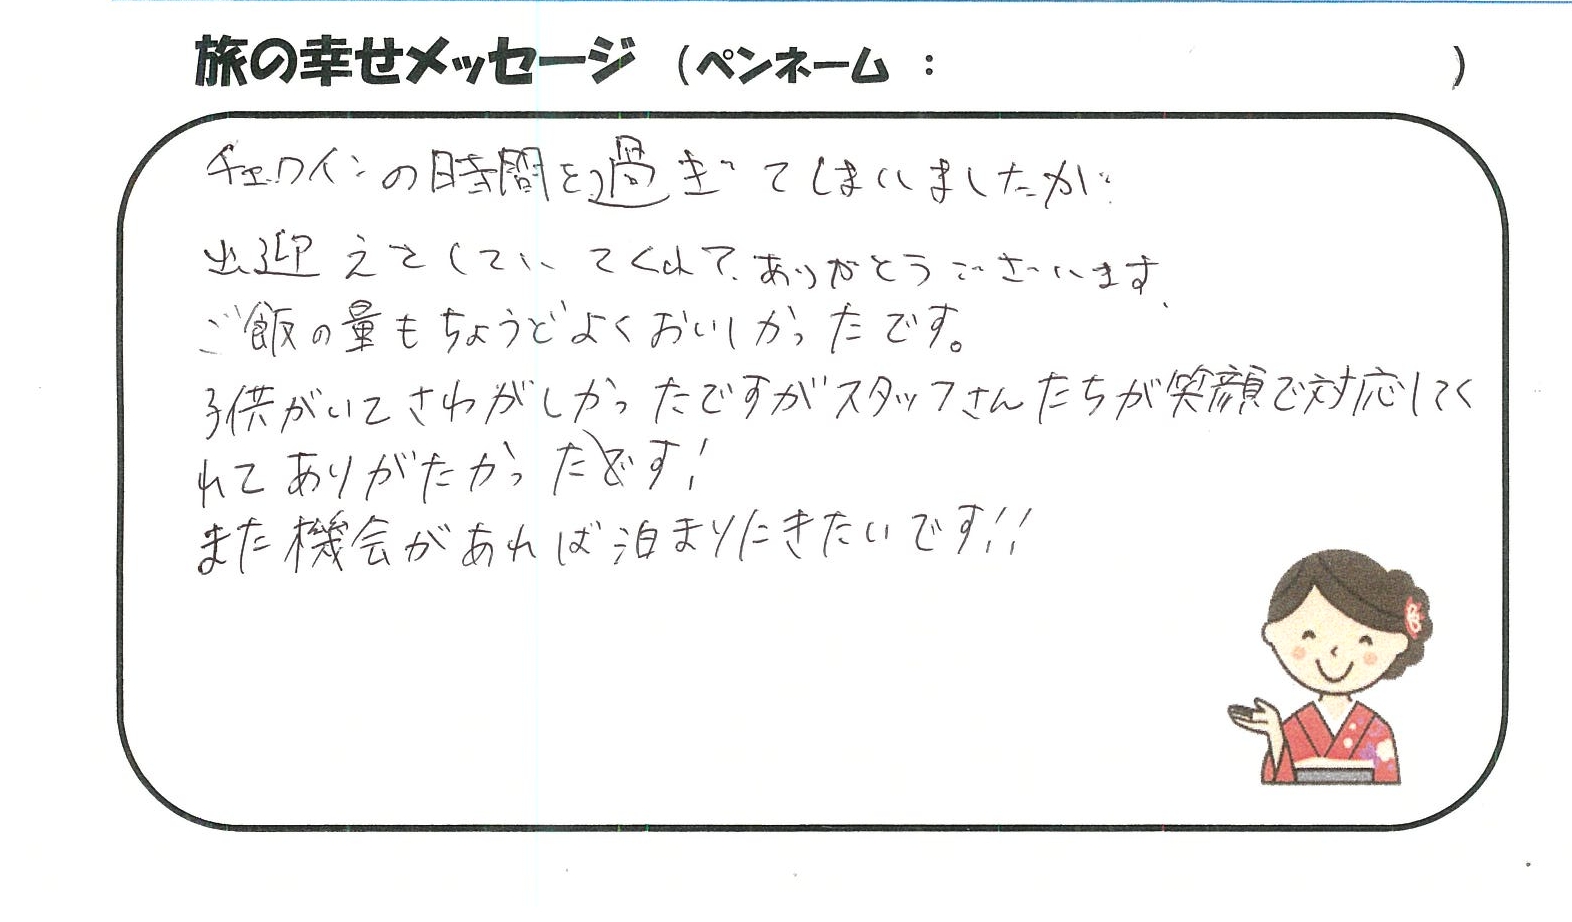 旅の幸せメッセージ （ペンネーム：　　　　　　）
チェックインの時間を過ぎてしまいましたが
出迎えをしていてくれて、ありがとうございます、
ご飯の量もちょうどよくおいしかったです。
子供がいてさわがしかったですがスタッフさんたちが笑顔で対応してく
れてありがたかったです！
また機会があれば泊まりにきたいです！！